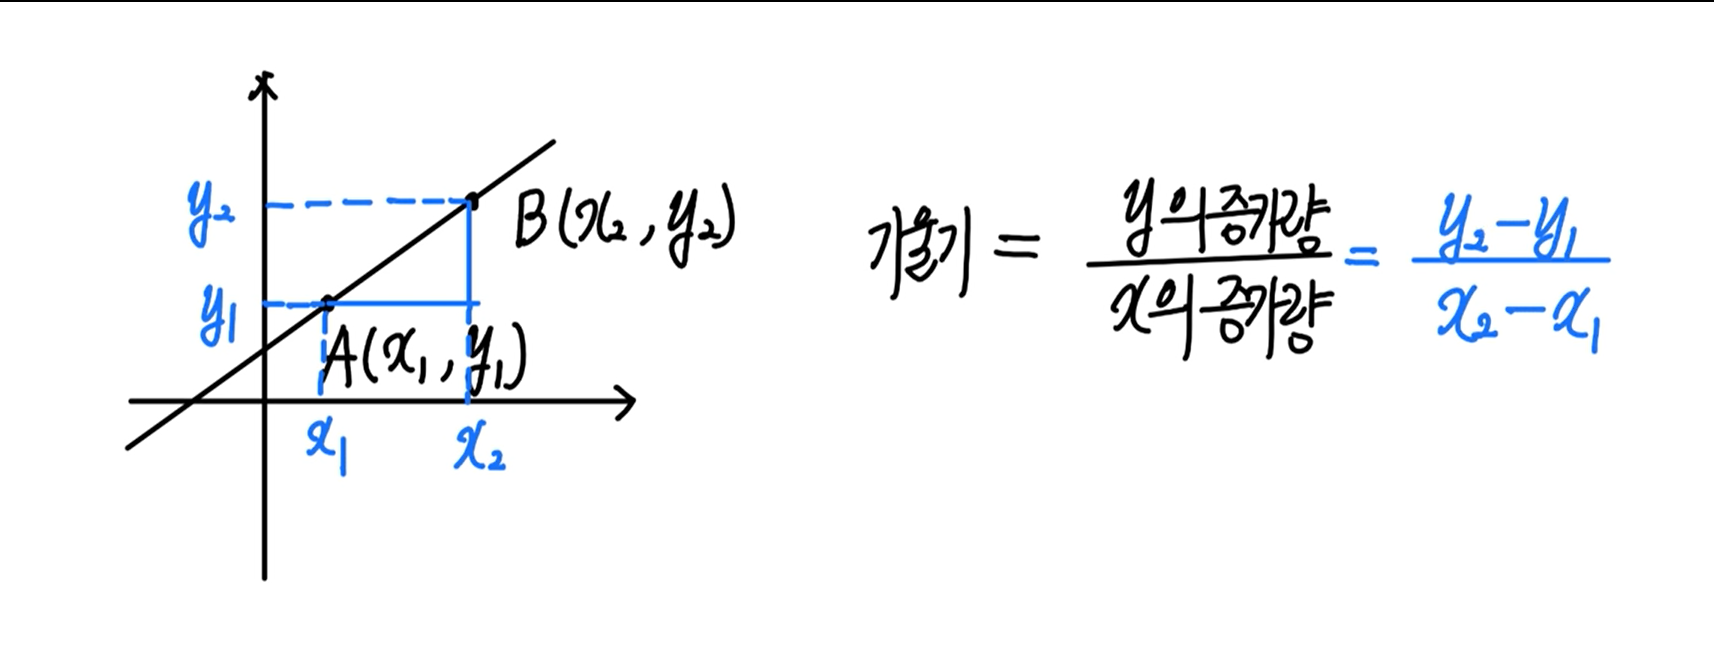 y₂
B(x₂, y₂)
y₁
A(x₁, y₁)
x₁ x₂
기울기 = y의 증가량 / x의 증가량 = y₂-y₁ / x₂-x₁